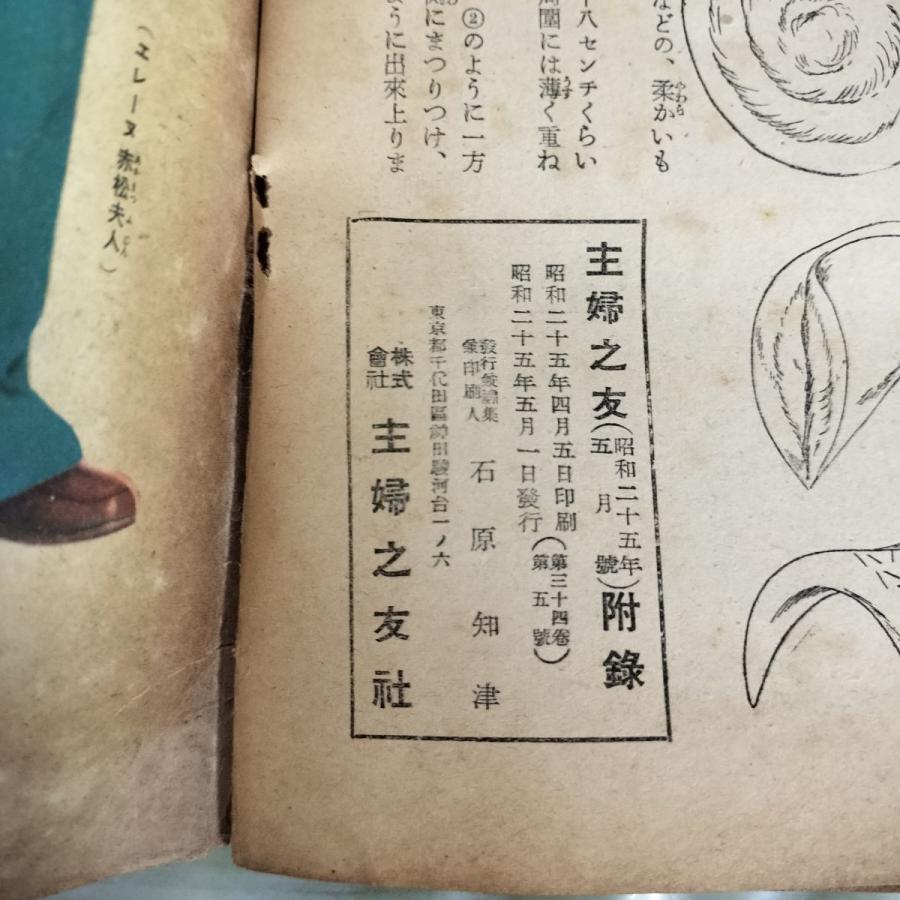 などの、柔かいも
やわら
十八センチくらい
周圍には薄く重ね
うす
②のように一方
側にまつりつけ、
ように出來上りま
主婦之友（昭和二十五年五月號）附錄
昭和二十五年四月五日印刷
昭和二十五年五月一日發行（第三十四卷第五號）
發行兼編集兼印刷人 石原知津
東京都千代田區神田駿河台一ノ六
株式會社 主婦之友社
赤松夫人）